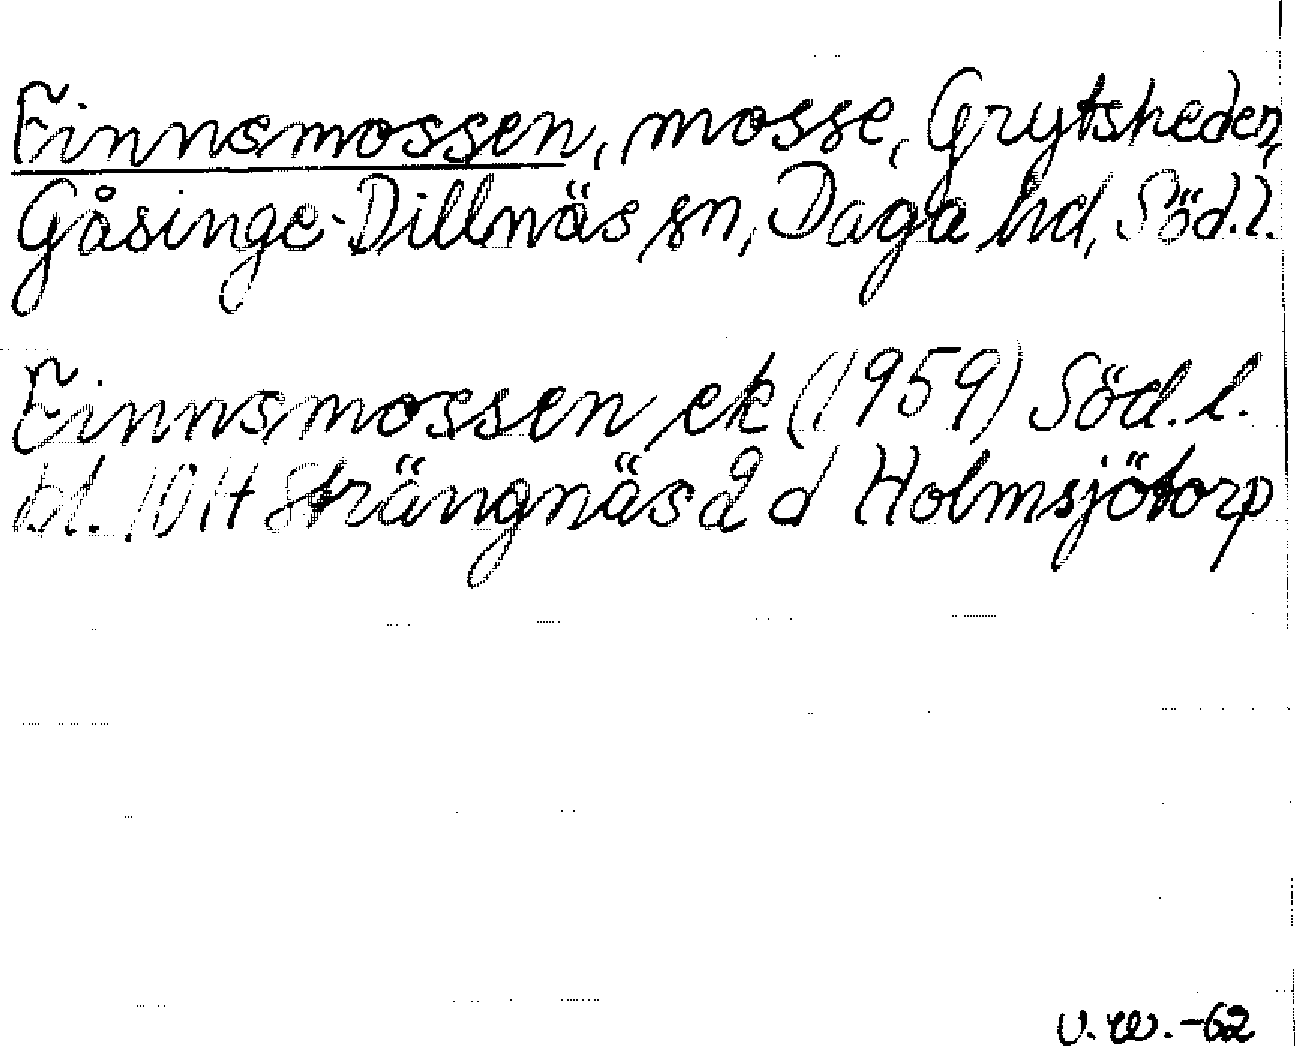 Finnsmossen, mosse, Grytsheden,
Gåsinge-Dillnäs sn, Daga hd, Söd.l.
Finnsmossen ek (1959) Söd.l.
bl. 10H Strängnäs 2 d Holmsjötorp
U.W.-62